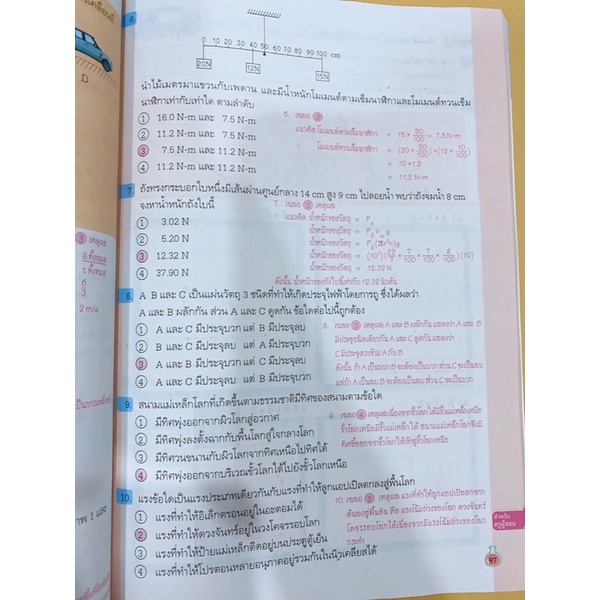 6.
0 10 20 30 40 50 60 70 80 90 100 cm
20N 12N 15N
D
นำไม้เมตรมาแขวนกับเพดาน และมีน้ำหนักโมเมนต์ตามเข็มนาฬิกาและโมเมนต์ทวนเข็ม
นาฬิกาเท่ากับเท่าใด ตามลำดับ
① 16.0 N-m และ 7.5 N-m
② 11.2 N-m และ 7.5 N-m
③ 7.5 N-m และ 11.2 N-m
④ 11.2 N-m และ 11.2 N-m
6. เฉลย ③
แนวคิด โมเมนต์ตามเข็มนาฬิกา = 15 × 50/100 = 7.5 N-m
โมเมนต์ทวนเข็มนาฬิกา = (20 × 50/100) + (12 × 10/100)
= 10 + 1.2
= 11.2 N-m
7. ถังทรงกระบอกใบหนึ่งมีเส้นผ่านศูนย์กลาง 14 cm สูง 9 cm ไปลอยน้ำ พบว่าถังจมน้ำ 8 cm
จงหาน้ำหนักถังใบนี้
① 3.02 N
② 5.20 N
③ 12.32 N
④ 37.90 N
7. เฉลย ③ เหตุผล
แนวคิด น้ำหนักของวัตถุ = F
น้ำหนักของวัตถุ
น้ำหนักของวัตถุ
น้ำหนักของวัตถุ = (10³)(22/7 × 7/100 × 7/100 × 8/100)(10)
น้ำหนักของวัตถุ = 12.32 N
ดังนั้น น้ำหนักของถังใบนี้เท่ากับ 12.32 นิวตัน
8. A B และ C เป็นแผ่นวัตถุ 3 ชนิดที่ทำให้เกิดประจุไฟฟ้าโดยการถู ซึ่งได้ผลว่า
A และ B ผลักกัน ส่วน A และ C ดูดกัน ข้อใดต่อไปนี้ถูกต้อง
① A และ C มีประจุบวก แต่ B มีประจุลบ
② A และ C มีประจุลบ แต่ B มีประจุบวก
③ A และ B มีประจุบวก แต่ C มีประจุลบ
④ A และ C มีประจุลบ แต่ B มีประจุบวก
8. เฉลย ③ เหตุผล A และ B ผลักกัน แสดงว่า A และ B
มีประจุชนิดเดียวกัน A และ C ดูดกัน แสดงว่า
C มีประจุตรงข้าม A กับ B
ดังนั้น ถ้า A เป็นบวก B จะต้องเป็นบวก ส่วน C จะเป็นลบ
แต่ถ้า A เป็นลบ B จะต้องเป็นลบ ส่วน C จะเป็นบวก
9. สนามแม่เหล็กโลกที่เกิดขึ้นตามธรรมชาติมีทิศของสนามตามข้อใด
① มีทิศพุ่งออกจากผิวโลกสู่อวกาศ
② มีทิศพุ่งลงตั้งฉากกับพื้นโลกสู่ใจกลางโลก
③ มีทิศวนขนานกับผิวโลกจากทิศเหนือไปทิศใต้
④ มีทิศพุ่งออกจากบริเวณขั้วโลกใต้ไปยังขั้วโลกเหนือ
9. เฉลย ④ เหตุผล
10. แรงข้อใดเป็นแรงประเภทเดียวกันกับแรงที่ทำให้ลูกแอปเปิลตกลงสู่พื้นโลก
① แรงที่ทำให้อิเล็กตรอนอยู่ในอะตอมได้
② แรงที่ทำให้ดวงจันทร์อยู่ในวงโคจรรอบโลก
③ แรงที่ทำให้ป้ายแม่เหล็กติดอยู่บนประตูตู้เย็น
④ แรงที่ทำให้โปรตอนหลายอนุภาคอยู่รวมกันในนิวเคลียสได้
10. เฉลย ② เหตุผล แรงที่ทำให้ลูกแอปเปิลตกจาก
ต้นลงสู่พื้นดิน คือ แรงโน้มถ่วงของโลก ดวงจันทร์
โคจรรอบโลกได้เนื่องจากมีแรงโน้มถ่วงของโลก
กระทำ
สำหรับ
ครูผู้สอน
97
③ เหตุผล
2 m/s